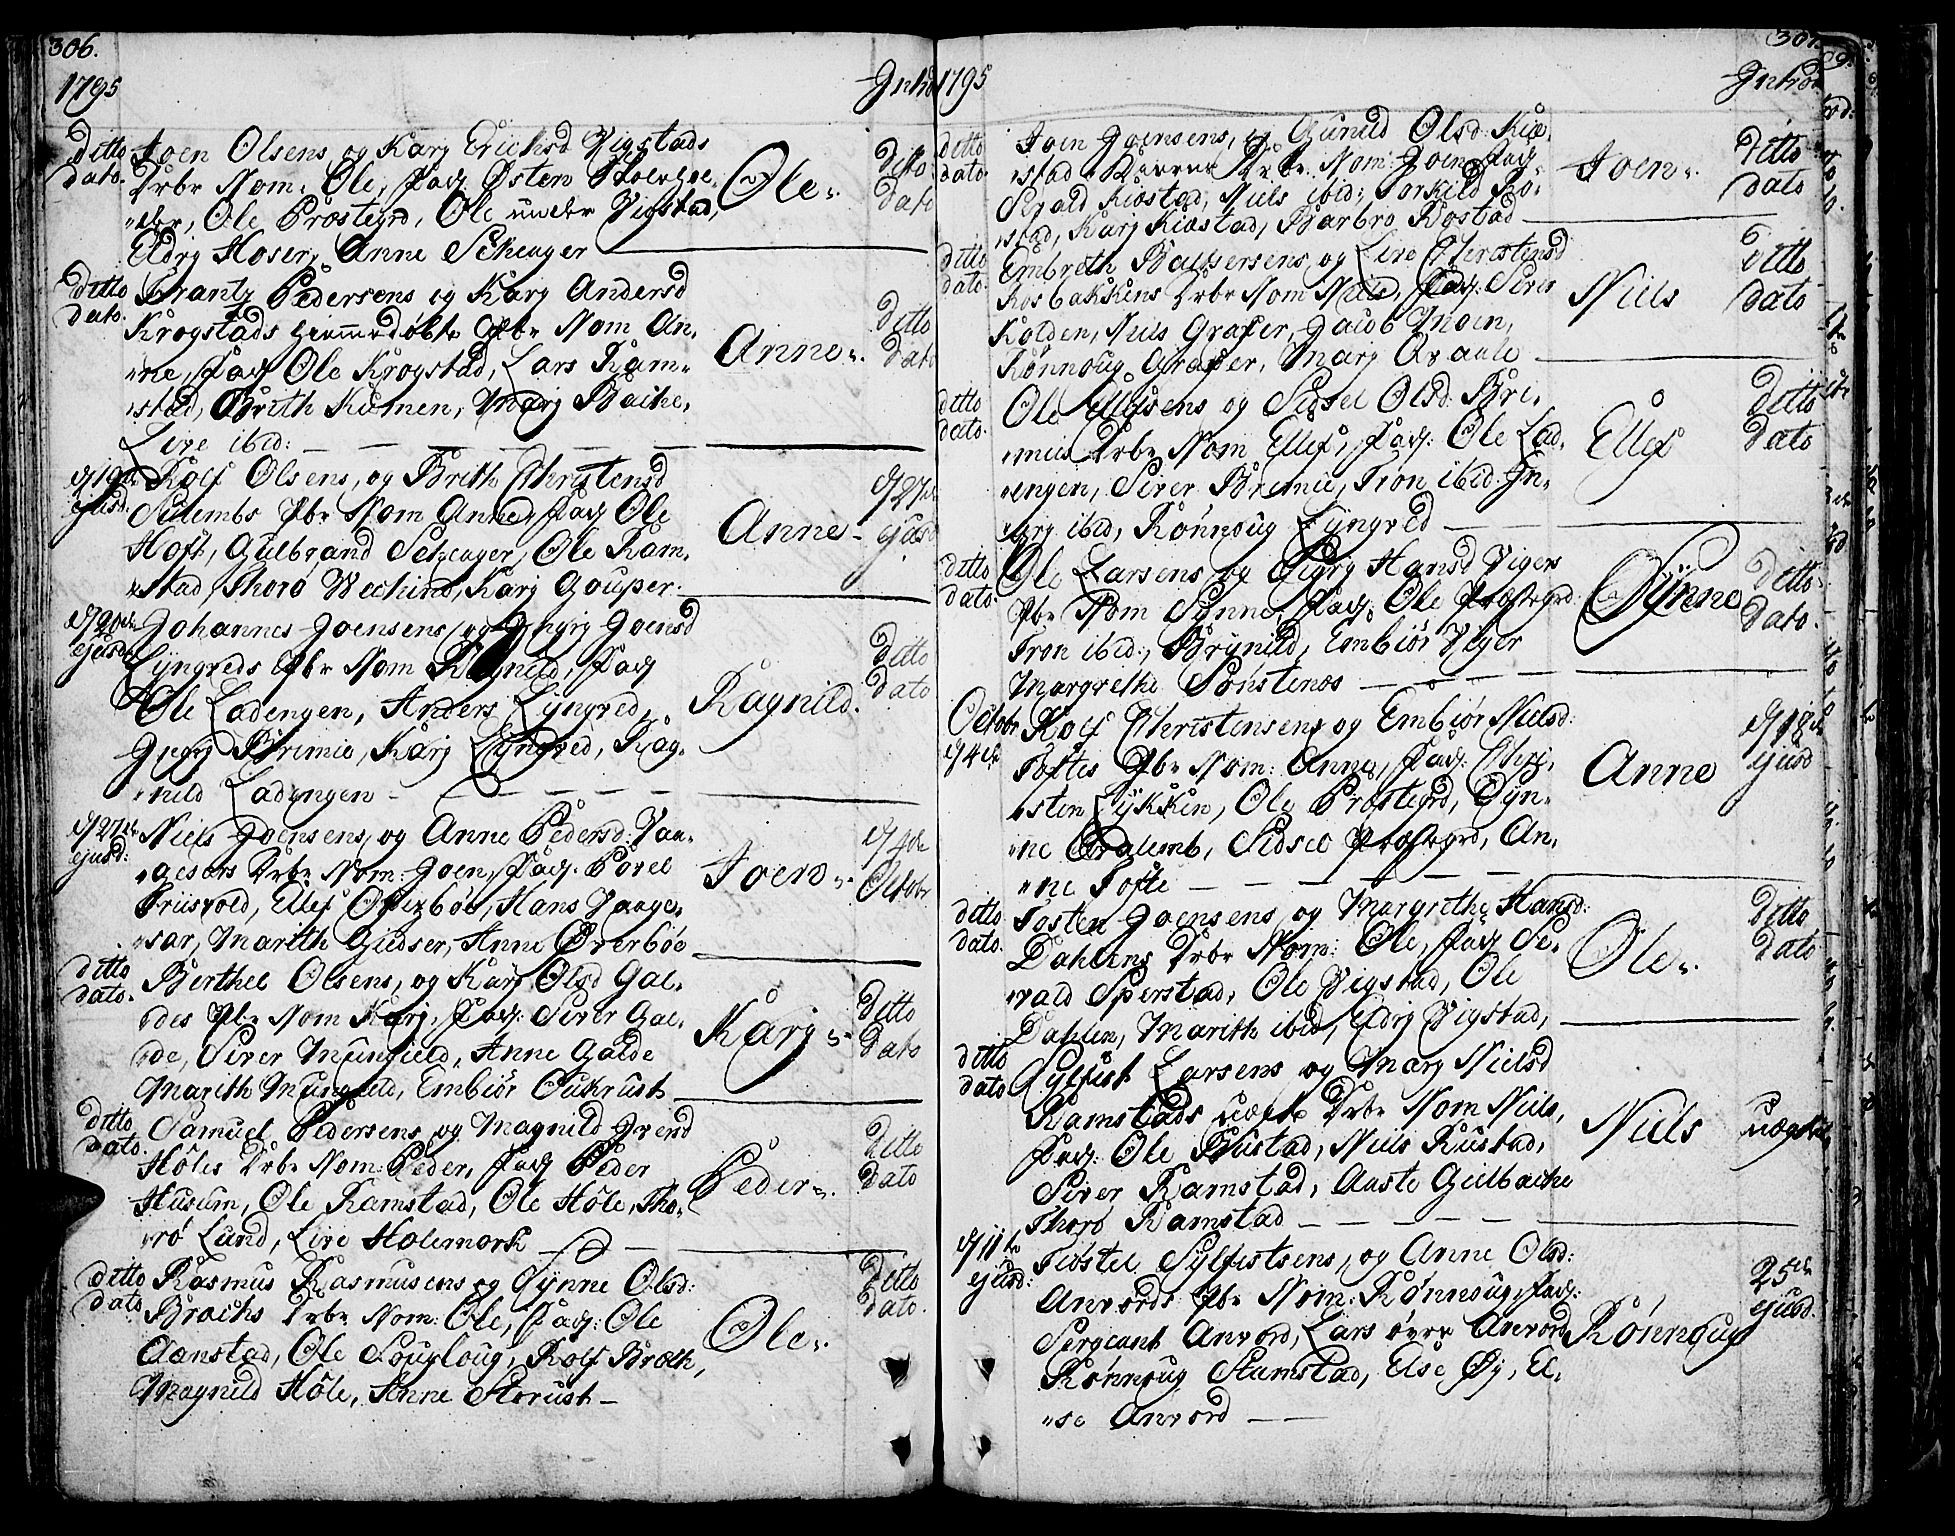 306.
1795 Introd
ditto dato. Joen Olsens og Karj Erichsd Vigstads
Drbr Nom: Ole, Fad: Østen
Ole Prostegrd, Ole under Vigstad,
Eldrj Hoser, Anne Schenger
Ole
ditto dato
ditto dato. Frantz Pedersens og Karj Andersd
Krogstads hiemmedøbte Pbr Nom An,
"ne, Fad Ole Krogstad, Lars Ram,
"stad, Brith Kumen, Marj Bache,
Live ibid:
Anne
ditto dato
d 19de ejusd. Rolf Olsens, og Brith Christensd
Sulembs Pbr Nom Anne, Fad Ole
Hoft, Gulbrand Schenger, Ole Ram,
"stad, Thorø Vechum, Karj Gouper
Anne
d 27de ejusd
d 20de ejusd. Johannes Joensens og Ingrj Joensd
Lyngveds Pbr Nom Ragnild, Fad
Ole Ladengen, Anders Lyngved,
Ingrj Brimie, Karj Lyngved, Rag,
"nild Ladengen
Ragnild.
ditto dato
d 27de ejusd: Niels Joensens og Anne Pedersd: Vaa,
"gesars Drbr Nom: Joen, Fad. Povel
Friisvold, Ellef Øverbøe, Hans Vaage,
"sar, Marith Giedser, Anne Øverbøe
Joen
d 4de Octobr.
ditto dato. Berthel Olsens, og Karj Olsd Gal,
"des Pbr Nom Karj, Fad: Siver Gal,
"de, Siver Mungield, Anne Galde
Marith Mungield, Embiør Oukrust
Karj
ditto dato
ditto dato. Samuel Pedersens og Magnild Iversd
Høles Drbr Nom: Peder, Fad Peder
Husum, Ole Ramstad, Ole Høle, Tho,
"rø Lund, Live Holemork
Peder
ditto dato
ditto dato Rasmus Rasmusens og Synne Olsd:
Brochs Drbr Nom: Ole, Fad: Ole
Aanstad, Ole Sougloug, Rolf Broch,
Magnild Høle, Anne Storust
Ole
ditto dato.
307.
1795 Introd
ditto dato. Joen Joensens, og Gunild Olsd: Kiø,
"stad Drbr. Nom: Joen, Fad:
Sevald Kiøstad, Niels ibid: Torkild Ro,
"stad, Karj Kiøstad, Barbro Rostad
Joen
ditto dato
ditto dato. Embreth Balzersens og Live Christensd
Kosbakkens Drbr Nom Niels, Fad: Siver
Kolden, Niels Graffer, Jacob Moen,
Rønnoug Graffer, Marj Aaxaale
Niels
ditto dato
ditto dato. Ole Ellefsens og Sidsel Olsd: Bri,
"mies Drbr Nom Ellef, Fad: Ole Lad,
"engen, Siver Brimie, Tron ibid. In,
"grj ibid, Rønnoug Lyngved
Ellef
ditto dato
ditto dato. Ole Larsens og Sigrj Hansd Vigers
Pbr Nom Synne, Fad: Ole Præstegrd
Tron ibid:, Brynild, Embiør Viger
Margrethe Sønstenes
Synne
ditto dato.
Octobr d 4de Rolf Christensens og Embiør Nielsd:
Toftes Pbr Nom: Anne, Fad: Chri,
"sten Lykken, Ole Prostegrd, Syn,
"ne Sulemb, Sidsel Præstegrd, An,
"ne Tofte
Anne
d 18de ejusd
ditto dato. Tosten Joensens og Margrethe Hansd:
Dahlens Drbr Nom: Ole, Fad Se,
"vald Sperstad, Ole Vigstad, Ole
Dahlen, Marith ibid, Eldrj Vigstad,
Ole
ditto dato
ditto dato Sylfest Larsens og Marj Nielsd
Ramstads uægte Drbr Nom Niels,
Fad: Ole Rustad, Niels Rustad,
Siver Ramstad, Aaste Gielbache
Thorø Ramstad
Niels
uægte
d 11te ejusd: Tiøstel Sylfestsens, og Anne Olsd:
Anvords Pbr Nom: Rønnoug, Fad:
Sergeant Anvord, Lars øvre Anvord
Rønnoug Stamstad, Else Øy, El,
"se Anvord
Rønnoug
25de ejusd.